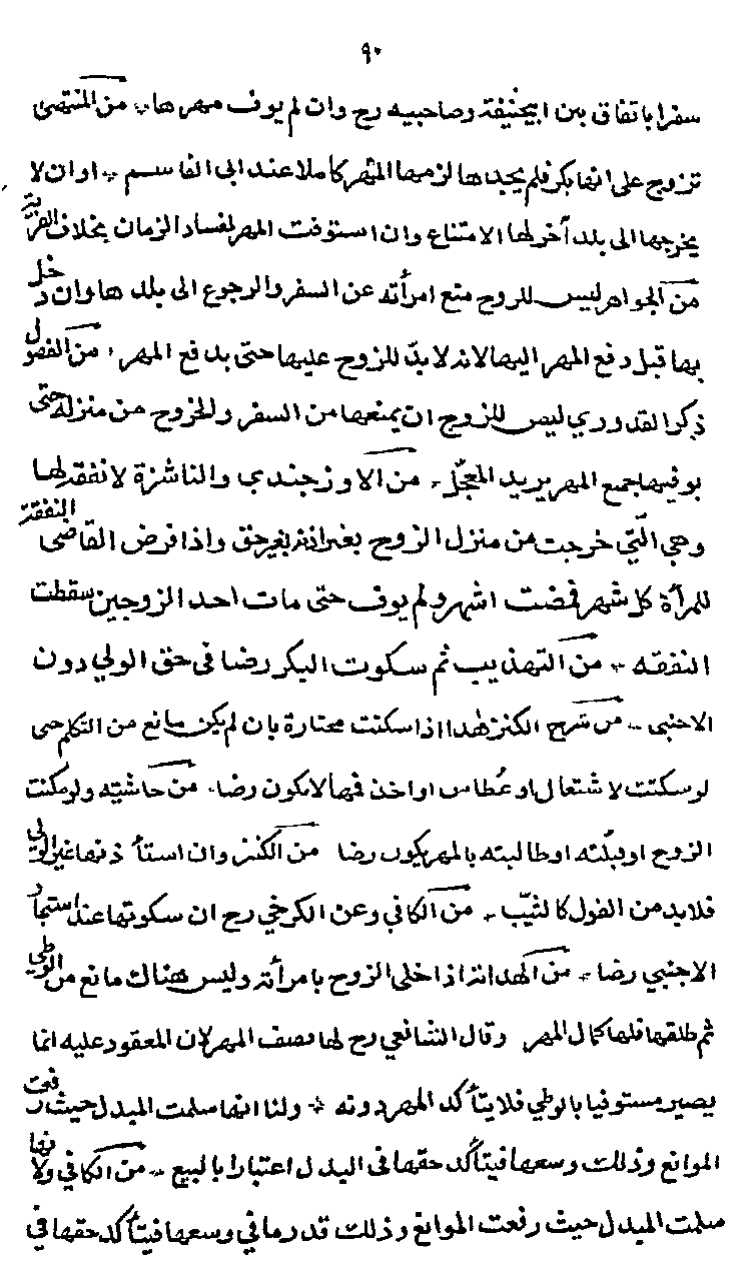 ٩٠
سفرا باتفاق بين ابيحنيفة وصاحبيه رح وان لم يوف مهرها * من المنتهى
تزوج على انها بكر فلم يجدها لزمها المهر كاملا عند ابى القاسم * او ان لا
يخرجها الى بلد آخر لها الامتناع وان استوفت المهر لفساد الزمان بخلاف القرية
من الجواهر ليس للزوج منع امرأته عن السفر والرجوع الى بلدها وان دخل
بها قبل دفع المهر اليها لانه لا يد للزوج عليها حتى يدفع المهر * من الفصول
ذكر القدوري ليس للزوج ان يمنعها من السفر والخروج من منزله حتى
يوفيها جميع المهر يريد المعجّل * من الاوزجندي والناشزة لا نفقة لها
وهي الّتي خرجت من منزل الزوج بغير اذنه بغير حق واذا فرض القاضى النفقة
للمرأة كل شهر فمضت اشهر ولم يوف حتى مات احد الزوجين سقطت
النفقه * من التهذيب ثم سكوت البكر رضا فى حق الولي دون
الاجنبى * من شرح الكنز هذا اذا سكتت مختارة بان لم يكن مانع من التكلم حتى
لو سكتت لاشتعال او عُطاس او اخذ فمها لا يكون رضا * من حاشيته ولو مكنت
الزوج او قبلته او طالبته بالمهر يكون رضا من الكنز وان استأذنها غير الولى
فلا بد من القول كالثيّب * من الكافي وعن الكرخي رح ان سكوتها عند استيجار
الاجنبي رضا * من الهداية اذا خلى الزوج بامرأته وليس هناك مانع من الوطي
ثم طلقها فلها كمال المهر وقال الشافعي رح لها نصف المهر لان المعقود عليه انما
يصير مستوفيا بالوطي فلا يتأكد المهر دونه * ولنا انها سلمت المبدل حيث رفعت
الموانع وذلك وسعها فيتأكد حقها فى البدل اعتبارا بالبيع * من الكافي ولانها
سلمت المبدل حيث رفعت الموانع وذلك قدر ما في وسعها فيتأكد حقها في